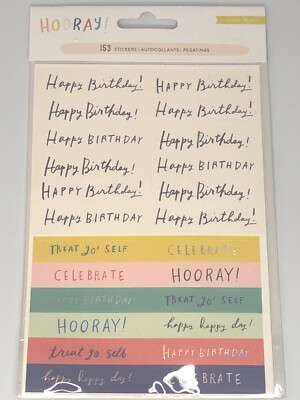 HOORAY!
153 STICKERS/AUTOCOLLANTS/PEGATINAS
Happy Birthday! HAPPY BIRTHDAY!
Happy Birthday! Happy Birthday!
Happy BIRTHDAY Happy BIRTHDAY
Happy Birthday! Happy Birthday!
HAPPY BIRTHDAY! Happy Birthday!
Happy BIRTHDAY Happy Birthday!
TREAT YO' SELF CELEBRATE
CELEBRATE HOORAY!
HAPPY BIRTHDAY TREAT YO' SELF
HOORAY! happy happy day!
treat yo' self HAPPY BIRTHDAY
happy happy day! CELEBRATE